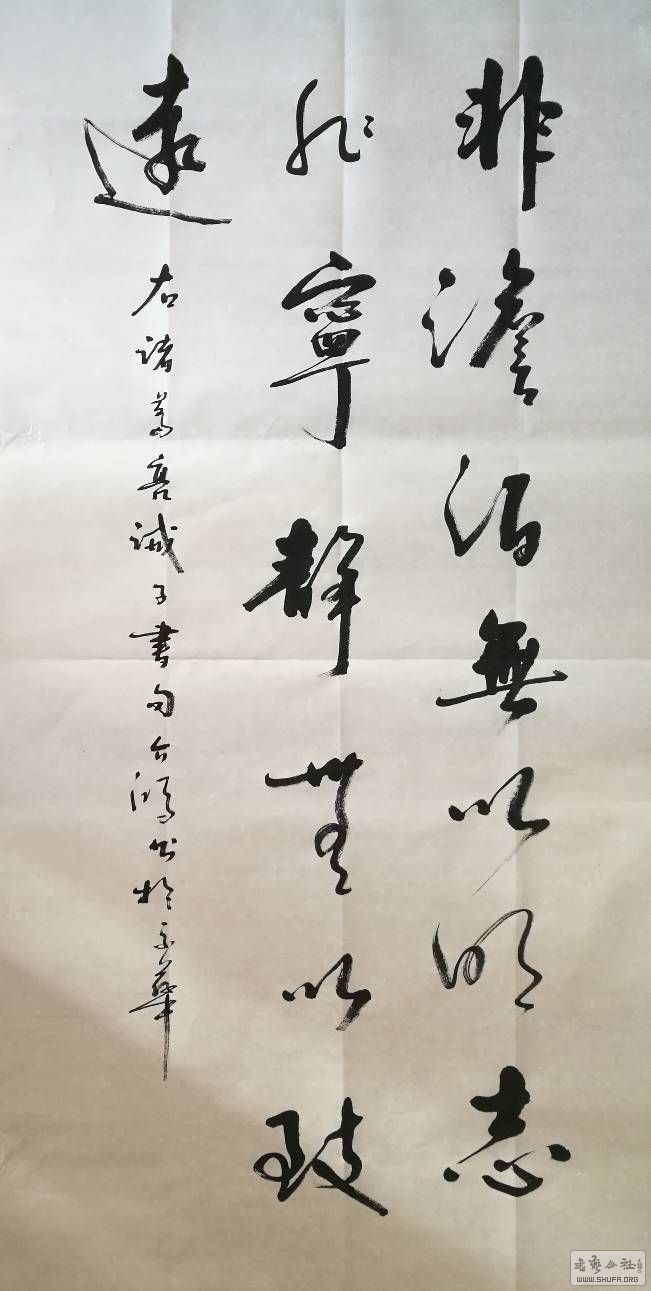 非澹泊無以明志
非寧靜無以致
遠
右諸葛亮誡子書句 鴻書於京華
书艺公社
WWW.SHUFA.ORG